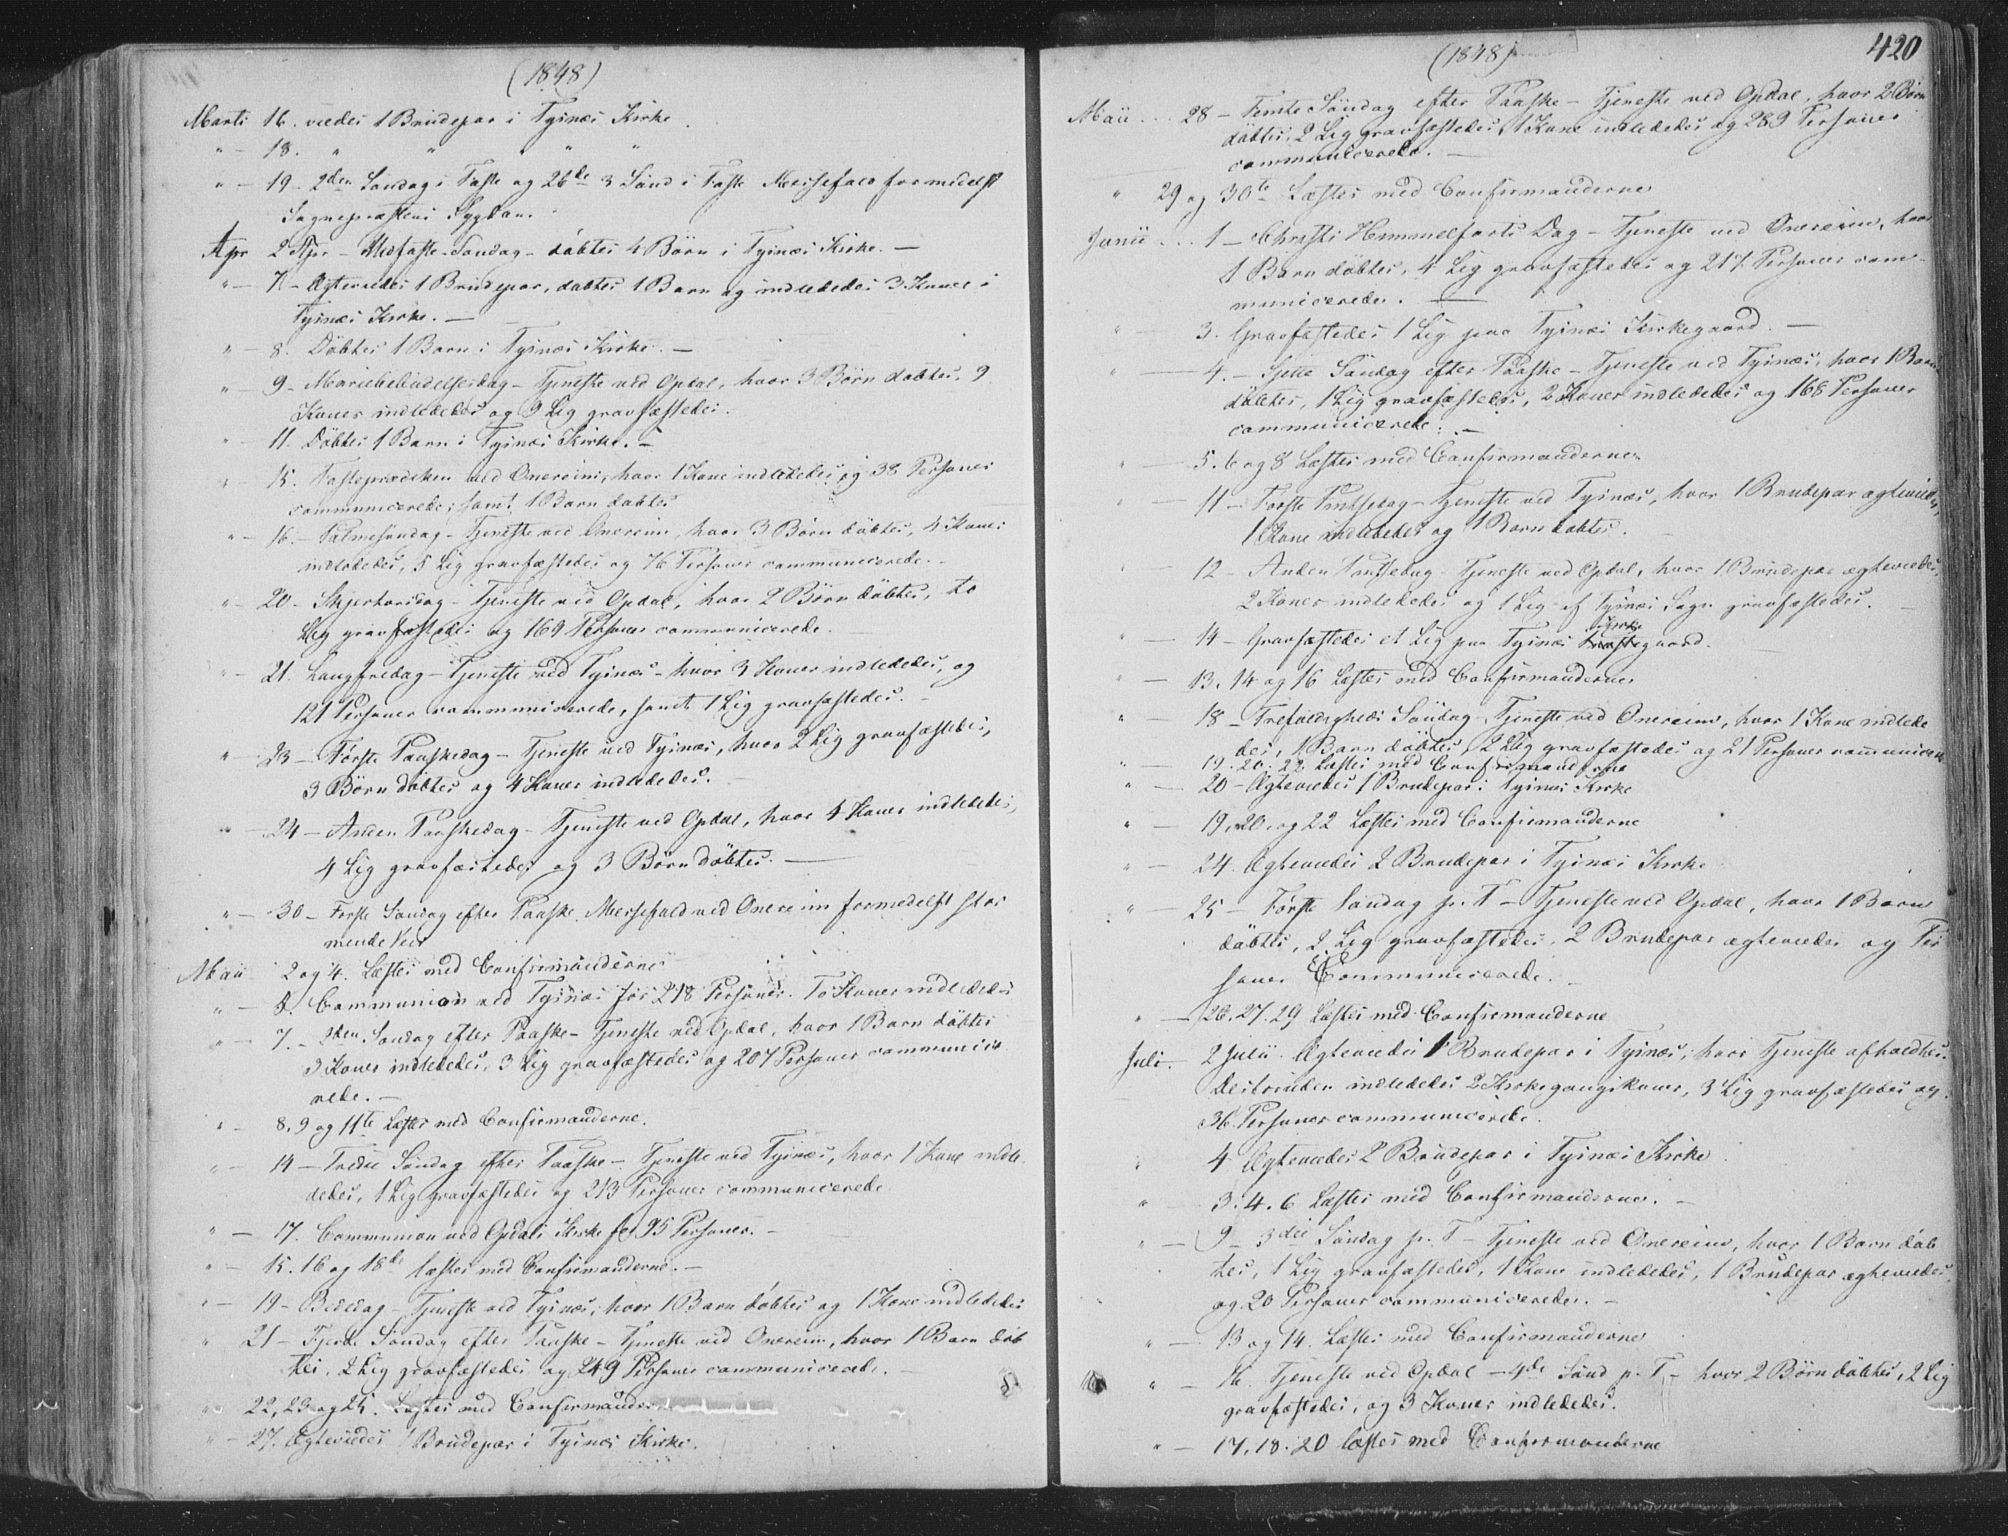 (1848)
Marti 16. viedes 1 Brudepar i Tysnæs Kirke
" – 18. " " " "
" – 19 – 2den Søndag i Faste og 26de 3 Sønd i Faste Messefald formedelst
Sognepræstens Sygdom.
Apr 2 Apr – Midfaste-Søndag – döbtes 4 Börn i Tysnæs Kirke. –
" – 7 – Ægteviedes 1 Brudepar, döbtes 1 Barn og indlededes 3 Koner i
Tysnæs Kirke. –
" – 8. Döbtes 1 Barn i Tysnæs Kirke. –
" 9 – Mariæbebudelsesdag – Tjeneste ved Opdal, hvor 3 Börn döbtes, 9
Koner indlededes og 9 Lig gravfæstedes.
" – 11. Döbtes 1 Barn i Tysnæs Kirke. –
" – 15. Fasteprædiken ved Onereim, hvor 1 Kone indlededes og 38 Personer
communicerede; samt 1 Barn döbtes
" – 16. – Palmesöndag – Tjeneste ved Onereim, hvor 3 Börn döbtes, 4 Koner
indlededes, 5 Lig gravfæstedes og 76 Personer communicerede. –
" – 20 – Skjertorsdag – Tjeneste ved Opdal, hvor 2 Börn döbtes, to
Lig gravfæstedes og 169 Personer communicerede.
" – 21. Langfredag – Tjeneste ved Tysnæs – hvor 3 Koner indlededes, og
121 Personer communicerede, samt 1 Lig gravfæstedes. –
" – 23 – Første Paaskedag – Tjeneste ved Tysnæs, hvor 2 Lig gravfæstedes,
3 Börn döbtes og 4 Koner indlededes. –
" – 24 – Anden Paaskedag – Tjeneste ved Opdal, hvor 4 Koner indlededes,
4 Lig gravfæstedes og 3 Börn döbtes. –
" – 30 – Første Søndag efter Paaske, Messefald ved Onereim formedelst stor
mende Veir
Maii 2 og 4. Læstes med Confirmanderne
" – Communion ved Tysnæs for 218 Personer. To Koner indlededes
" – 7. – 2den Søndag efter Paaske – Tjeneste ved Opdal, hvor 1 Barn döbtes
3 Koner indlededes, 3 Lig gravfæstedes og 207 Personer communice
rede. –
" – 8, 9 og 11te Læstes med Confirmanderne.
" – 14 – Tredie Søndag efter Paaske – Tjeneste ved Tysnæs, hvor 1 Kone indle
dedes, 1 Lig gravfæstedes og 213 Personer communicerede
" – 17. Communion ved Opdals Kirke for 95 Personer. –
" – 15. 16 og 18de læstes med Confirmanderne. –
" – 19 – Bededag – Tjeneste ved Tysnæs, hvor 1 Barn döbtes og 1 Kone indlededes
" 21 – Fjerde Søndag efter Paaske – Tjeneste ved Onereim, hvor 1 Barn döb
tes, 2 Lig gravfæstedes og 249 Personer communicerede. –
" 22, 23 og 25. Læstes med Confirmander
" – 27. Ægteviedes 1 Brudepar i Tysnæs Kirke.
(1848)
420
Maii ... 28 – Femte Søndag efter Paaske – Tjeneste ved Opdal, hvor 2 Börn
döbtes, 2 Lig gravfæstedes, 1 Kone indlededes og 289 Personer
communicerede. –
" 29 og 30te Læstes med Confirmanderne
Junii ... 1 – Christi Himmelfarts Dag – Tjeneste ved Onereim, hvor
1 Barn döbtes, 4 Lig gravfæstedes og 217 Personer com-
municerede. –
" – 3. Gravfæstedes 1 Lig paa Tysnæs Kirkegaard. –
" – 4. – Sjette Søndag efter Paaske – Tjeneste ved Tysnæs, hvor 1 Barn
döbtes, 1 Lig gravfæstedes, 2 Koner indlededes og 168 Personer
communicerede. –
" – 5. 6 og 8 Læstes med Confirmanderne
" – 11 – Første Pintsedag – Tjeneste ved Tysnæs, hvor 1 Brudepar ægteviedes,
1 Kone indlededes og 1 Barn döbtes.
" – 12 – Anden Pintsedag – Tjeneste ved Opdal, hvor 1 Brudepar ægteviedes,
2 Koner indlededes og 1 Lig af Tysnæs Sogn gravfæstedes. –
" – 14 – Gravfæstedes et Lig paa Tysnæs Kirkegaard.
" – 13, 14 og 16 Læstes med Confirmanderne
" – 18 – Trefoldigheds Søndag – Tjeneste ved Onereim, hvor 1 Kone indlede
des, 1 Barn döbtes, 2 Lig gravfæstedes og 21 Personer communicere
" – 19. 20. 22 Læstes med Confirmanderne
" – 20 – Ægteviedes 1 Brudepar i Tysnæs Kirke
" – 19, 20, og 22 Læstes med Confirmanderne
" – 24. Ægteviedes 2 Brudepar i Tysnæs Kirke
" – 25 – Første Søndag p. T – Tjeneste ved Opdal, hvor 1 Barn
döbtes, 2 Lig gravfæstedes, 2 Brudepar ægteviedes og Per
soner Communicerede. –
" – 26. 27. 29 Læstes med Confirmanderne
Juli. 2 Julii. Ægteviedes 1 Brudepar i Tysnæs, hvor Tjeneste afholdtes.
Desforuden indlededes 2 Kirkegangskoner, 3 Lig gravfæstedes og
36 Personer communicerede.
" 4 Ægteviedes 2 Brudepar i Tysnæs Kirke
" – 3. 4. 6 Læstes med Confirmanderne. –
" – 9 – 3die Søndag p. T – Tjeneste ved Onereim, hvor 1 Barn döb
tes, 1 Lig gravfæstedes, 1 Kone indlededes, 1 Brudepar ægteviedes,
og 20 Personer communicerede. –
" – 13 og 14. Læstes med Confirmanderne
" – 16. Tjeneste ved Opdal – 4de Sønd p. T – hvor 2 Börn döbtes, 2 Lig
gravfæstedes, og 3 Koner indlededes.
" – 17, 18. 20 læstes med Confirmanderne